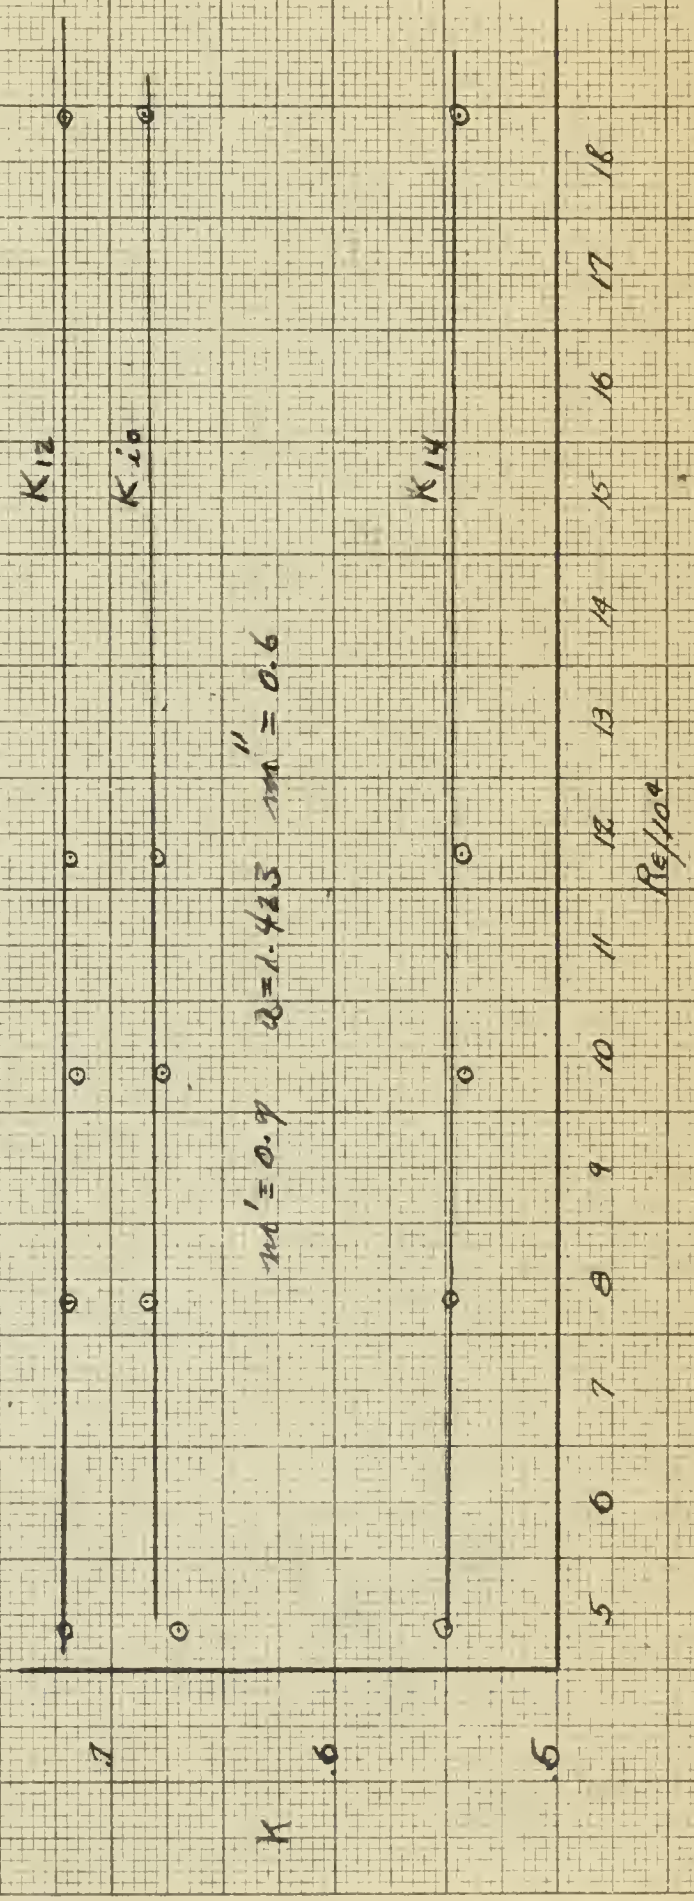 K12
K io
K14
m' = 0.9 a = 1.423 m'' = 0.6
.7
.6
.5
K
5 6 7 8 9 10 11 12 13 14 15 16 17 18
Re/10⁴